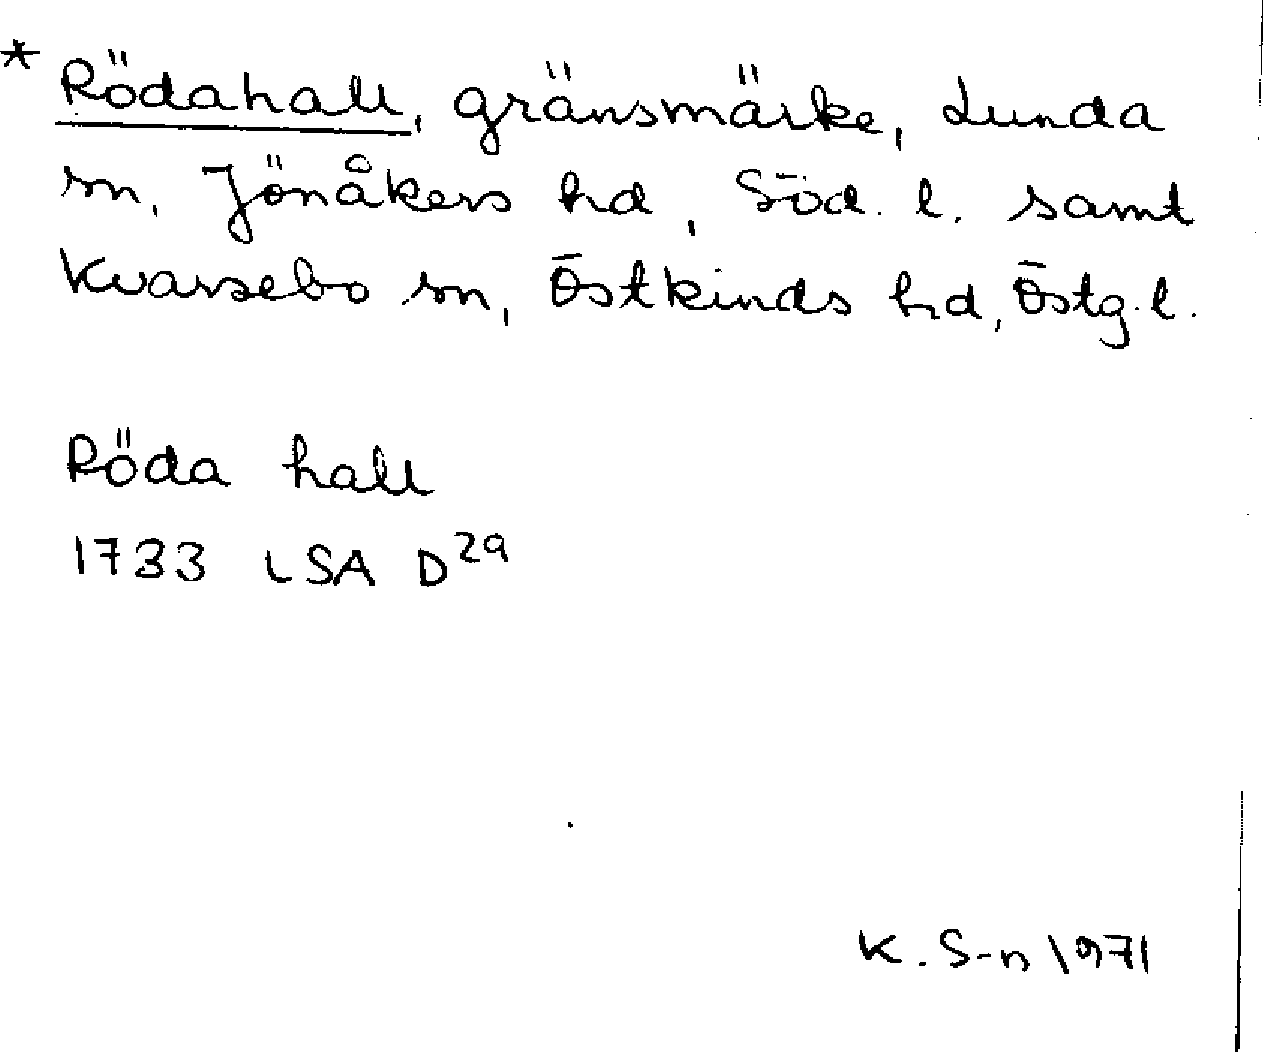 * Rödahall, gränsmärke, Lunda
sn, Jönåkers hd, Söd. l. samt
Kvarsebo sn, Östkinds hd, Östg. l.
Röda hall
1733 LSA D²⁹
K. S-n 1971